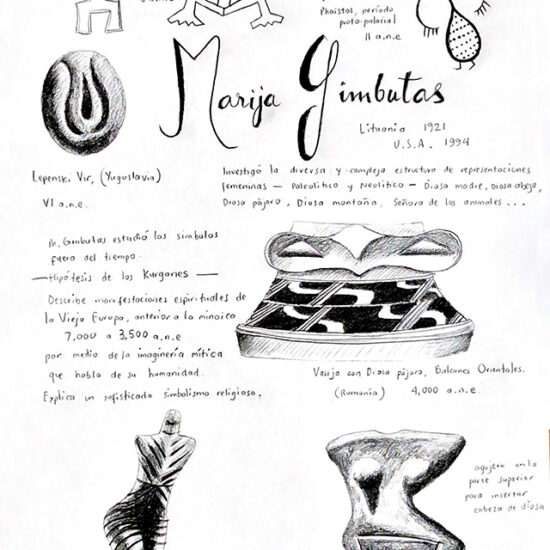 Phaistos, período
proto-palacial
II a.n.e
Marija Gimbutas
Lituania 1921
U.S.A. 1994
Lepenski Vir, (Yugoslavia)
VI a.n.e.
Investigó la diversa y compleja estructura de representaciones
femeninas — Paleolítico y Neolítico — Diosa madre, Diosa abeja,
Diosa pájaro, Diosa montaña, Señora de los animales ...
M. Gimbutas estudió los símbolos
fuera del tiempo.
— Hipótesis de los Kurganes —
Describe manifestaciones espirituales de
la Vieja Europa, anterior a la minoica
7,000 a 3,500 a.n.e
por medio de la imaginería mítica
que habla de su humanidad.
Explica un sofisticado simbolismo religioso.
Vasija con Diosa pájaro, Balcanes Orientales.
(Rumanía) 4,000 a.n.e.
agujero en la
parte superior
para insertar
cabeza de diosa